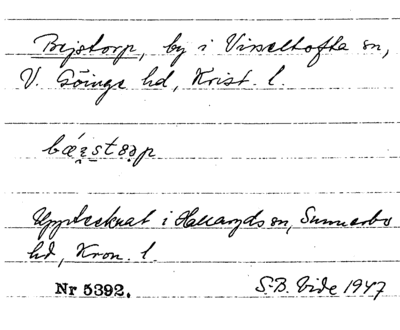 Bejstorp, by i Visseltofta sn,
V. Göinge hd, Krist. l.
Upptecknat i Hallaryds sn, Sunnerbo
hd, Kron. l.
Nr 5392. S-B. Vide 1947